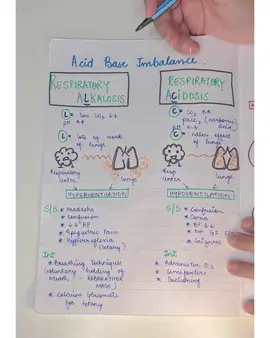 Acid Base Imbalance
RESPIRATORY
ALKALOSIS
L = low CO₂ ↓↓
pH ↑↑
L = lots of work
of lungs
Respiratory
center
lungs
HYPERVENTILATION
S/S * Headache
* Confusion
* ↓↓ BP
* Epigastric pain
* Hyperreflexia
(tetany)
Int
* Breathing techniques
(voluntary holding of
breath - REBREATHER
MASK)
* calcium gluconate
for tetany
RESPIRATORY
ACIDOSIS
C = CO₂ ↑↑
paco₂ (carbonic
pH ↓↓ acid
C = calm effect
of lungs
Resp
center
lungs
HYPOVENTILATION
S/S * Confusion
* Coma
* BP ↓↓
* Seizures
Int
* Administer O₂
* Semifowlers
* Suctioning